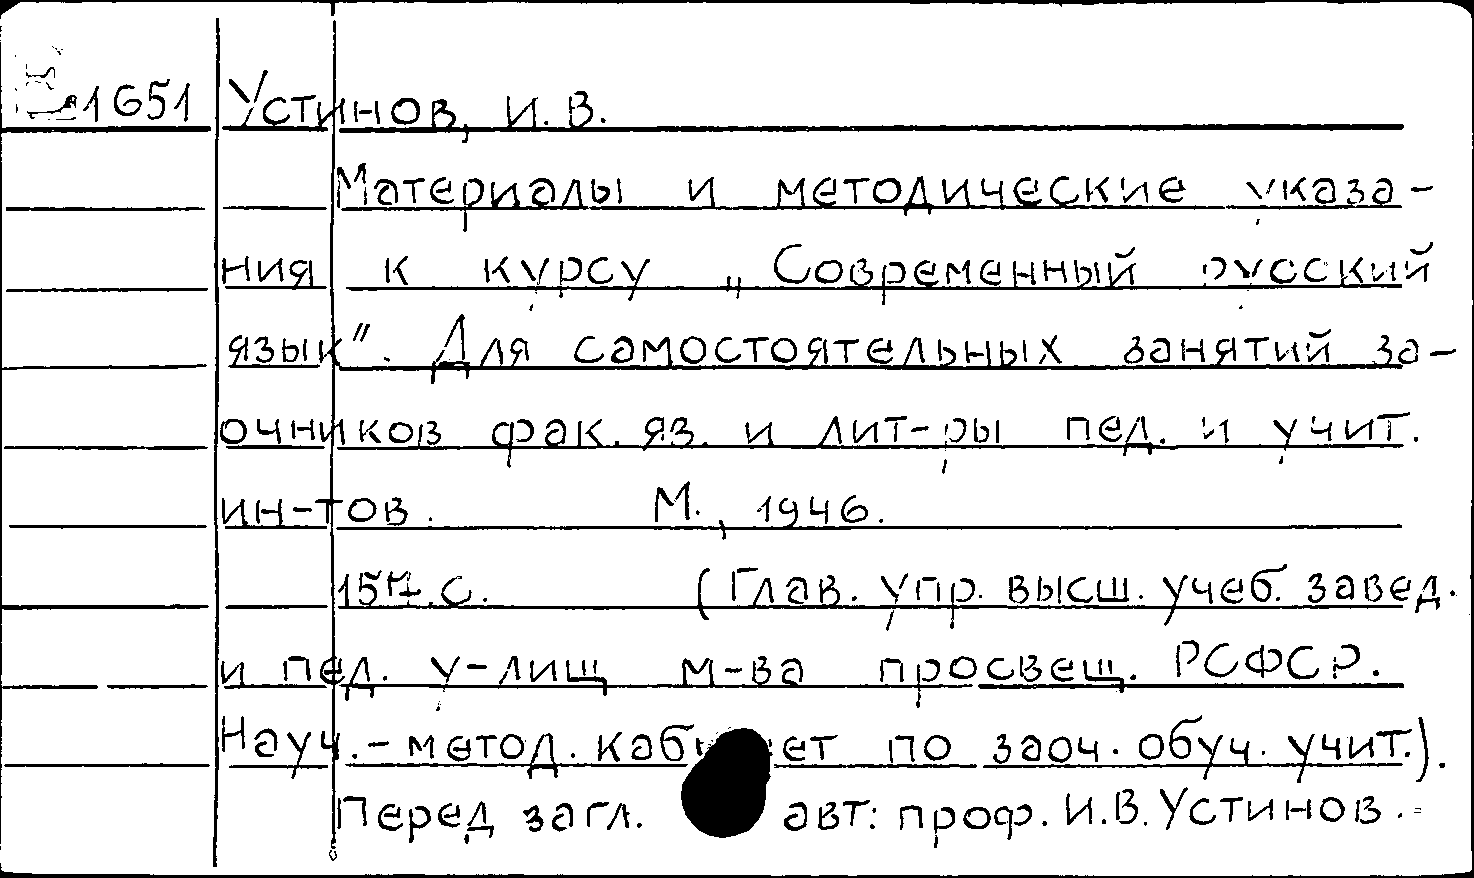 1651 Устинов, И. В.
Материалы и методические указа-
ния к курсу „Современный русский
язык". Для самостоятельных занятий за-
очников фак. яз. и лит-ры пед. и учит.
ин-тов. М., 1946.
157 с. (Глав. упр. высш. учеб. завед.
и пед. у-лищ м-ва просвещ. РСФСР.
Науч.-метод. кабинет по заоч. обуч. учит.).
Перед загл. авт: проф. И.В. Устинов.